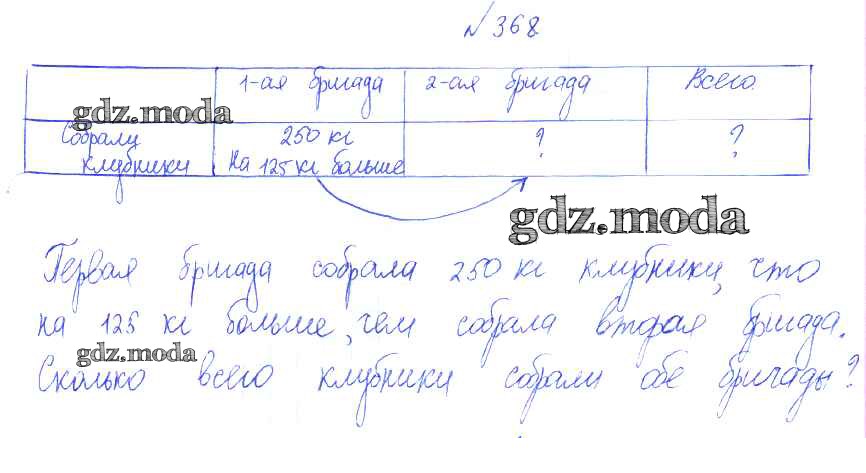 № 368
1-ая бригада 2-ая бригада Всего
gdz.moda
Собрали 250 кг ? ?
клубники на 125 кг больше
gdz.moda
Первая бригада собрала 250 кг клубники, что
на 125 кг больше, чем собрала вторая бригада.
gdz.moda
Сколько всего клубники собрали обе бригады?